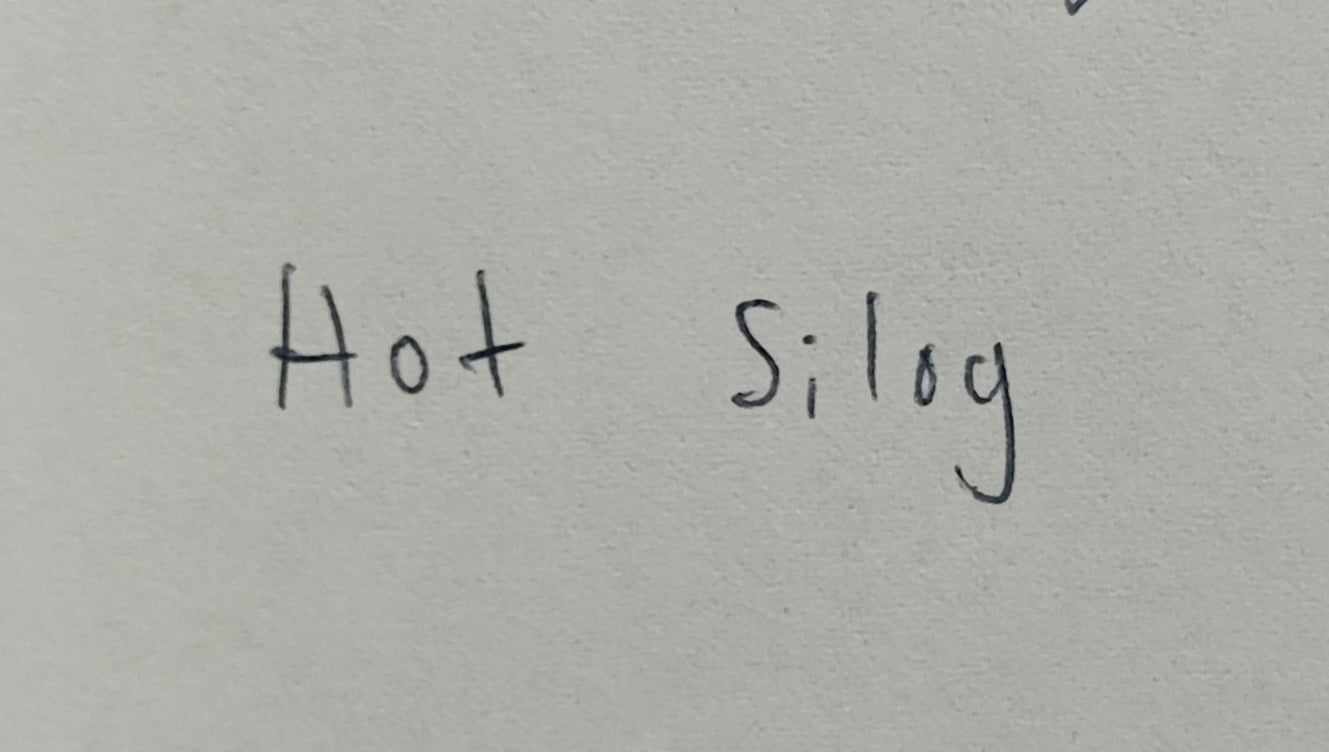 Hot Silog